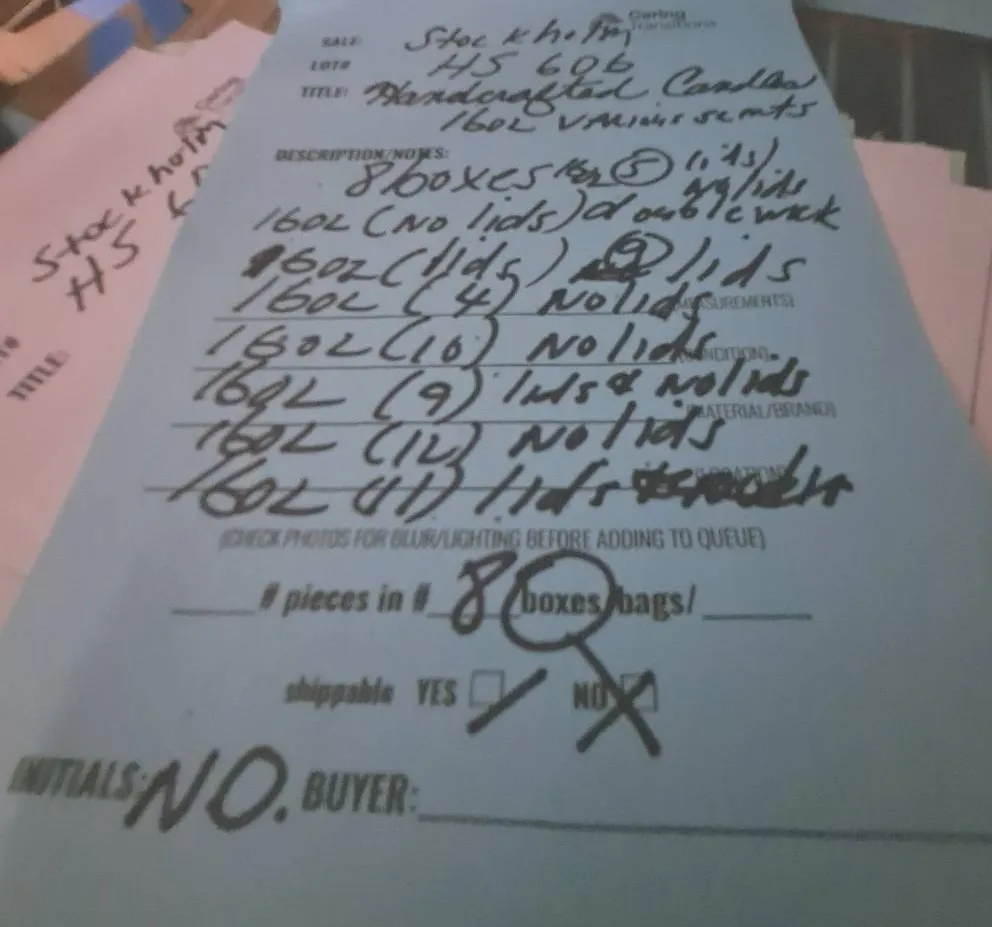 Caring
Transitions
SALE: Stockholm
LOT# HS 606
TITLE: Handcrafted Candles
16oz various scents
DESCRIPTION/NOTES:
8 boxes (5) lids)
no lids
16oz (No lids) double wick
16oz (lids) (9) lids
16oz (4) No lids
(MEASUREMENTS)
16oz (10) No lids
(CONDITION)
16oz (9) lids & No lids
(MATERIAL/BRAND)
16oz (12) No lids
16oz (11) lids
(CHECK PHOTOS FOR BLUR/LIGHTING BEFORE ADDING TO QUEUE)
# pieces in # 8 boxes/bags/
shippable YES NO
INITIALS: NO. BUYER:
Caring
Stockholm
HS
TITLE: